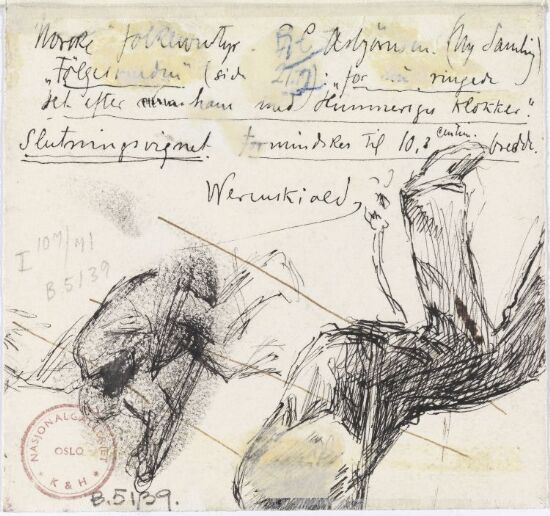 Norske folkeeventyr. Asbjørnsen. (Ny Samling)
"Følgesvenden" (side 217): for ringede
det efter ham med "Himmeriges klokker."
Slutningsvignet. Formindskes til 10,3 centim. bredde.
Werenskiold
I 10M/M1
B.51/39
NASJONALGALLERIET
OSLO
K & H
B.51/39.